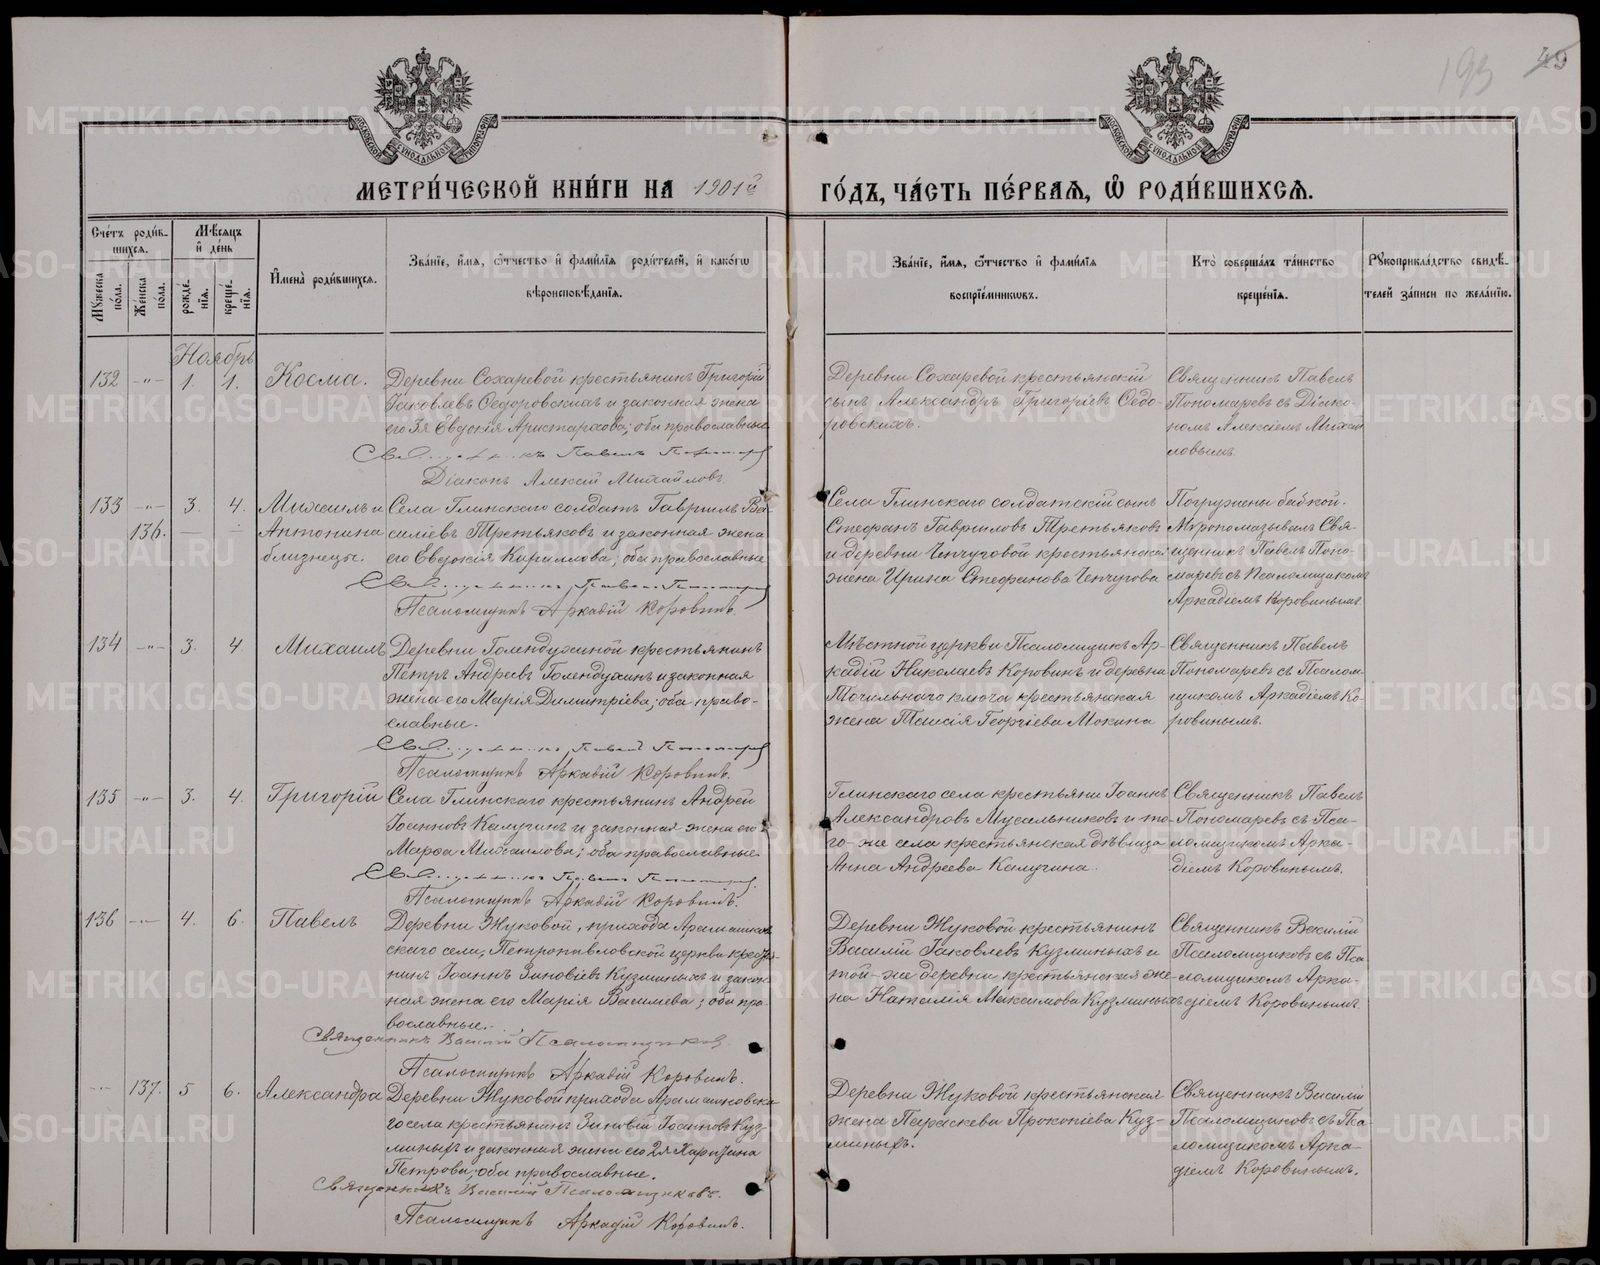 193 45
МЕТРИ́ЧЕСКОЙ КНИ́ГИ НА 1901й ГО́ДЪ, ЧА́СТЬ ПЕ́РВАЯ, Ѽ РОДИ́ВШИХСЯ.
Сче́тъ роди́в-
шихся.
Мѣ́сяцъ
и҆ де́нь
Му́жеска по́ла.
Же́нска по́ла.
рожде́нїя.
креще́нїя.
И҆мена̀ роди́вшихся.
Зва́нїе, и҆́мя, ѻ҆́тчество и҆ фами́лїя роди́телей, и҆ како́гѡ
вѣроисповѣ́данїя.
Зва́нїе, и҆́мя, ѻ҆́тчество и҆ фами́лїя
воспрїе́мникѡвъ.
Кто̀ соверша́лъ та́инство
креще́нїя.
Рꙋкоприкла́дство свидѣ́-
телей за́писи по жела́нїю.
Ноябрь
132 -„- 1. 1. Косма.
Деревни Сохаревой крестьянинъ Григорій
Іаковлевъ Ѳедоровскихъ и законная жена
его 3я Евдокія Аристархова; оба православные
Священникъ Павелъ Пономаревъ
Діаконъ Алексій Михайловъ
Деревни Сохаревой крестьянскій
сынъ Александръ Григоріевъ Ѳедо-
ровскихъ.
Священникъ Павелъ
Пономаревъ съ Діако-
номъ Алексіемъ Михай
ловымъ
133 -„- 3. 4. Михаилъ и
136. Антонина
близнецы.
Села Глинскаго солдатъ Гавріилъ Ва-
силіевъ Третьяковъ и законная жена
его Евдокія Кириллова; оба православные
Священникъ Павелъ Пономаревъ
Псаломщикъ Аркадій Коровинъ.
Села Глинскаго солдатскій сынъ
Стефанъ Гавриловъ Третьяковъ
и деревни Чепчуговой крестьянская
жена Ирина Стефанова Чепчугова
Погружены бабкой.
Мѵропомазывалъ Свя-
щенникъ Павелъ Поно-
маревъ съ Псаломщикомъ
Аркадіемъ Коровинымъ
134 -„- 3. 4. Михаилъ
Деревни Голендухиной крестьянинъ
Петръ Андреевъ Голендухинъ и законная
жена его Марія Димитріева; оба право-
славные.
Священникъ Павелъ Пономаревъ
Псаломщикъ Аркадій Коровинъ.
Мѣстной церкви Псаломщикъ Ар-
кадій Николаевъ Коровинъ и деревни
Точильнаго ключа крестьянская
жена Таисія Георгіева Мокина
Священникъ Павелъ
Пономаревъ съ Псалом-
щикомъ Аркадіемъ Ко-
ровинымъ.
135 -„- 3. 4. Григорій
Села Глинскаго крестьянинъ Андрей
Іоанновъ Калугинъ и законная жена его
Марѳа Михаилова; оба православные
Священникъ Павелъ Пономаревъ
Псаломщикъ Аркадій Коровинъ.
Глинскаго села крестьяни Іоаннъ
Александровъ Мусальниковъ и то-
го-же села крестьянская дѣвица
Анна Андреева Калугина.
Священникъ Павелъ
Пономаревъ съ Пса-
ломщикомъ Арка-
діемъ Коровинымъ.
136 -„- 4. 6. Павелъ
Деревни Жуковой, прихода Арамашков
скаго села, Петропавловской церкви крестья-
нинъ Іоаннъ Зиновіевъ Кузминыхъ и закон-
ная жена его Марія Василіева; оба пра-
вославные.
Священникъ Василій Псаломщиковъ
Псаломщикъ Аркадій Коровинъ.
Деревни Жуковой крестьянинъ
Василій Іаковлевъ Кузминыхъ и
той-же деревни крестьянская же-
на Наталія Максимова Кузминыхъ
Священникъ Василій
Псаломщиковъ съ Пса
ломщикомъ Арка-
діемъ Коровинымъ.
-„- 137. 5 6. Александра
Деревни Жуковой прихода Арамашковска
го села крестьянинъ Зиновій Іоанновъ Куз-
миныхъ и законная жена его 2я Харитина
Петрова; оба православные.
Священникъ Василій Псаломщиковъ.
Псаломщикъ Аркадій Коровинъ.
Деревни Жуковой крестьянская
жена Параскева Прокопіева Куз-
миныхъ.
Священникъ Василій
Псаломщиковъ съ Пса
ломщикомъ Арка-
діемъ Коровинымъ.
METRIKI.GASO-URAL.RU